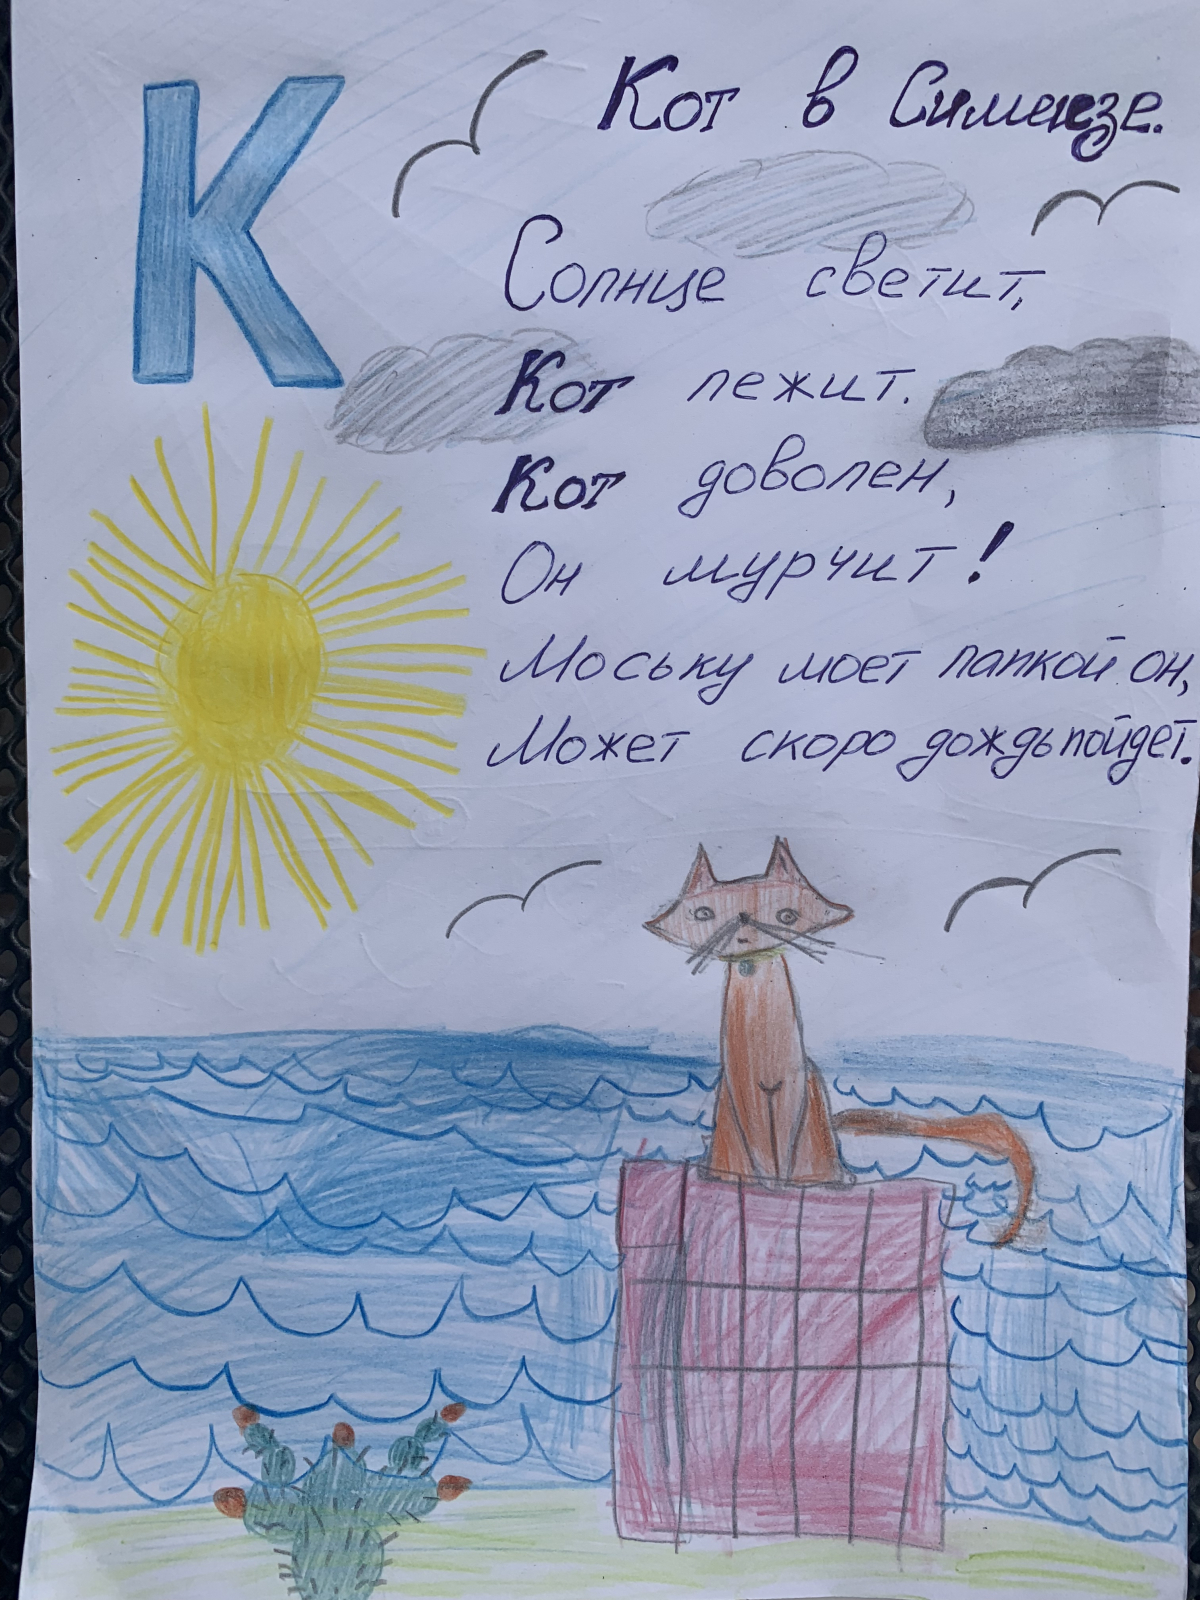 К
Кот в Симеизе.
Солнце светит,
Кот лежит.
Кот доволен,
Он мурчит!
Моську моет лапкой он,
Может скоро дождь пойдет.